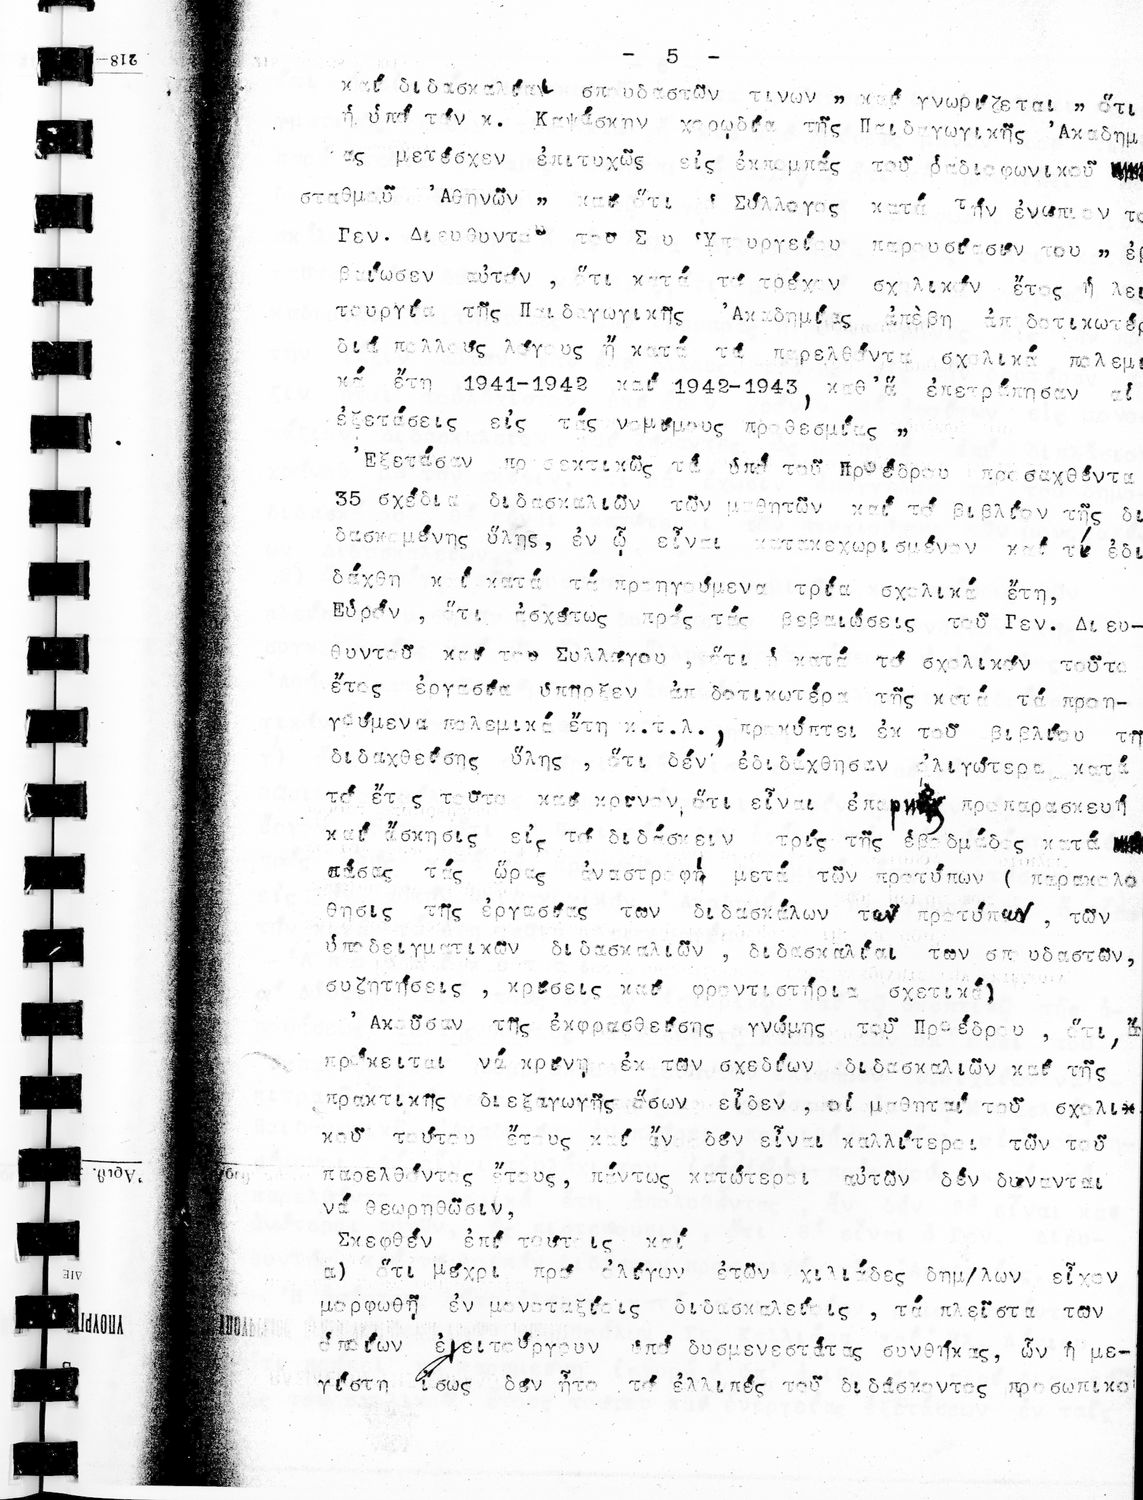 - 5 -
καί διδασκαλίαν σπουδαστῶν τινων „ καί γνωρίζεται „ ὅτι
ἡ ὑπό τόν κ. Καψάσκην χορωδία τῆς Παιδαγωγικῆς 'Ακαδημ
ας μετέσχεν ἐπιτυχῶς εἰς ἐκπομπάς τοῦ ῥαδιοφωνικοῦ
σταθμοῦ 'Αθηνῶν „ καί ὅτι ὁ Σύλλογος κατά τήν ἐνώπιον το
Γεν. Διευθυντοῦ τοῦ Σ υ 'Υπουργείου παρουσίασίν του „ ἐβ
βαίωσεν αὐτόν , ὅτι κατά τό τρέχον σχολικόν ἔτος ἡ λει
τουργία τῆς Παιδαγωγικῆς 'Ακαδημίας ἀπέβη ἀπ δοτικωτέρ
διά πολλούς λόγους ἤ κατά τά παρελθόντα σχολικά πολεμι
κά ἔτη 1941-1942 καί 1942-1943, καθ'ἅ ἐπετράπησαν αἱ
ἐξετάσεις εἰς τάς νομίμους προθεσμίας „
'Εξετάσαν προσεκτικῶς τά ὑπό τοῦ Προέδρου προσαχθέντα
35 σχέδια διδασκαλιῶν τῶν μαθητῶν καί τό βιβλίον τῆς δι
δασκομένης ὕλης, ἐν ᾧ εἶναι κατακεχωρισμένον καί τί ἐδι
δάχθη καί κατά τά προηγούμενα τρία σχολικά ἔτη,
Εὑρόν , ὅτι ἀσχέτως πρός τάς βεβαιώσεις τοῦ Γεν. Διευ-
θυντοῦ καί του Συλλόγου , ὅτι ἡ κατά τό σχολικόν τοῦτο
ἔτος ἐργασία ὑπῆρξεν ἀπ δοτικωτέρα τῆς κατά τά προη-
γούμενα πολεμικά ἔτη κ.τ.λ., προκύπτει ἐκ τοῦ βιβλίου τῆ
διδαχθείσης ὕλης , ὅτι δέν ἐδιδάχθησαν ὀλιγώτερα κατά
τό ἔτ ς τοῦτο καί κρίνον, ὅτι εἶναι ἐπαρκής προπαρασκευή
καί ἄσκησις εἰς τό διδάσκειν τρίς τῆς ἑβδομάδος κατά
πάσας τάς ὥρας ἀναστροφή μετά τῶν προτύπων ( παρακολο
θησις τῆς ἐργασίας των διδασκάλων των προτύπων , τῶν
ὑποδειγματικῶν διδασκαλιῶν , διδασκαλίαι των σπουδαστῶν,
συζητήσεις , κρίσεις καί φροντιστήρια σχετικά)
'Ακοῦσαν τῆς ἐκφρασθείσης γνώμης τοῦ Προέδρου , ὅτι,
πρόκειται νά κρίνῃ ἐκ τῶν σχεδίων διδασκαλιῶν καί τῆς
πρακτικῆς διεξαγωγῆς ὅσων εἶδεν , οἱ μαθηταί τοῦ σχολικ
κοῦ τούτου ἔτους καί ἄν δέν εἶναι καλλίτεροι τῶν τοῦ
παρελθόντος ἔτους, πάντως κατώτεροι αὐτῶν δέν δύνανται
νά θεωρηθῶσιν,
Σκεφθέν ἐπί τούτοις καί
α) ὅτι μέχρι πρό ὀλίγων ἐτῶν χιλιάδες δημ/λων εἶχον
μορφωθῆ ἐν μονοταξίοις διδασκαλείοις , τά πλεῖστα των
ὁποίων ἐλειτούργουν ὑπό δυσμενεστάτας συνθήκας, ὧν ἡ με-
γίστη ἴσως δέν ἦτο τό ἐλλιπές τοῦ διδάσκοντος προσωπικο